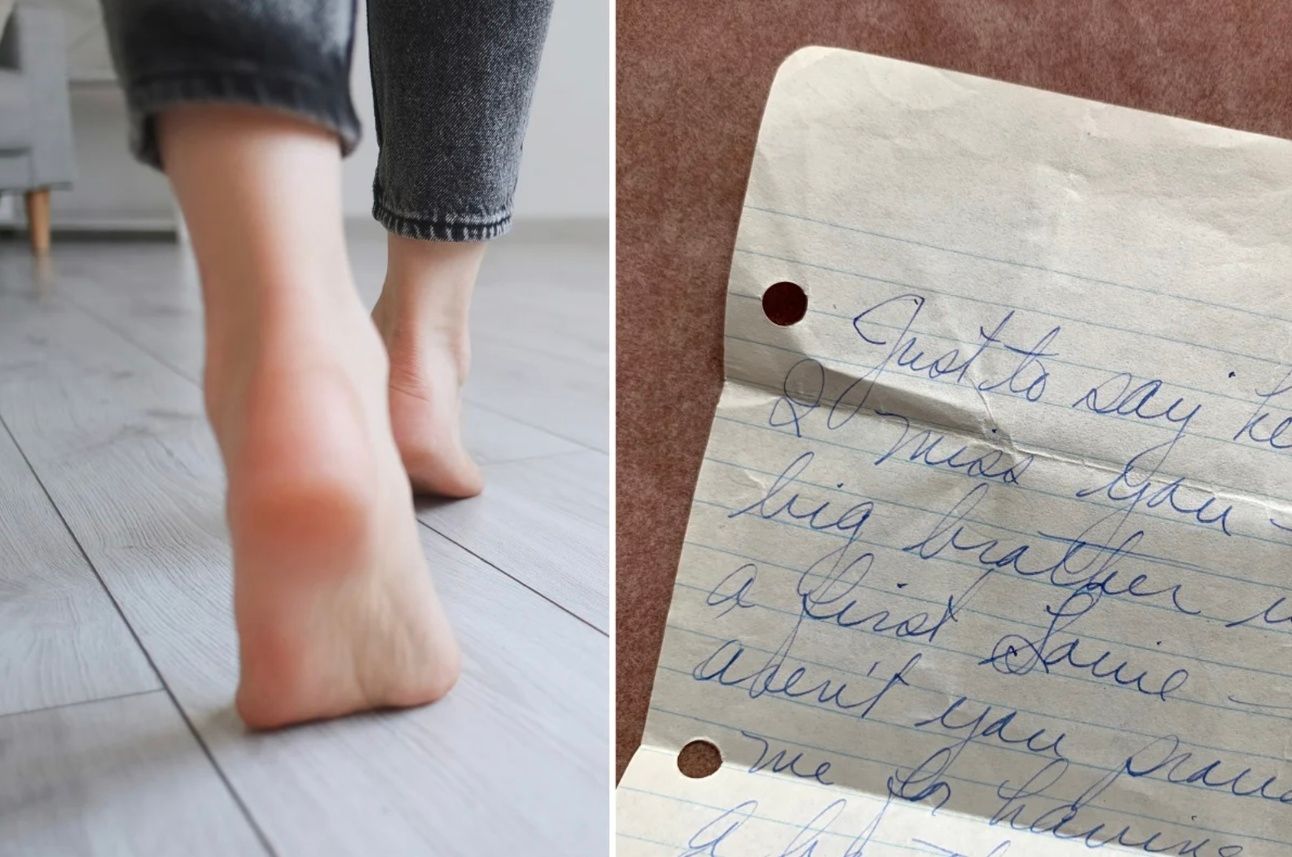 Just to say he
I miss you -
big brother
a first Louie -
aren't you prou
me for having
a